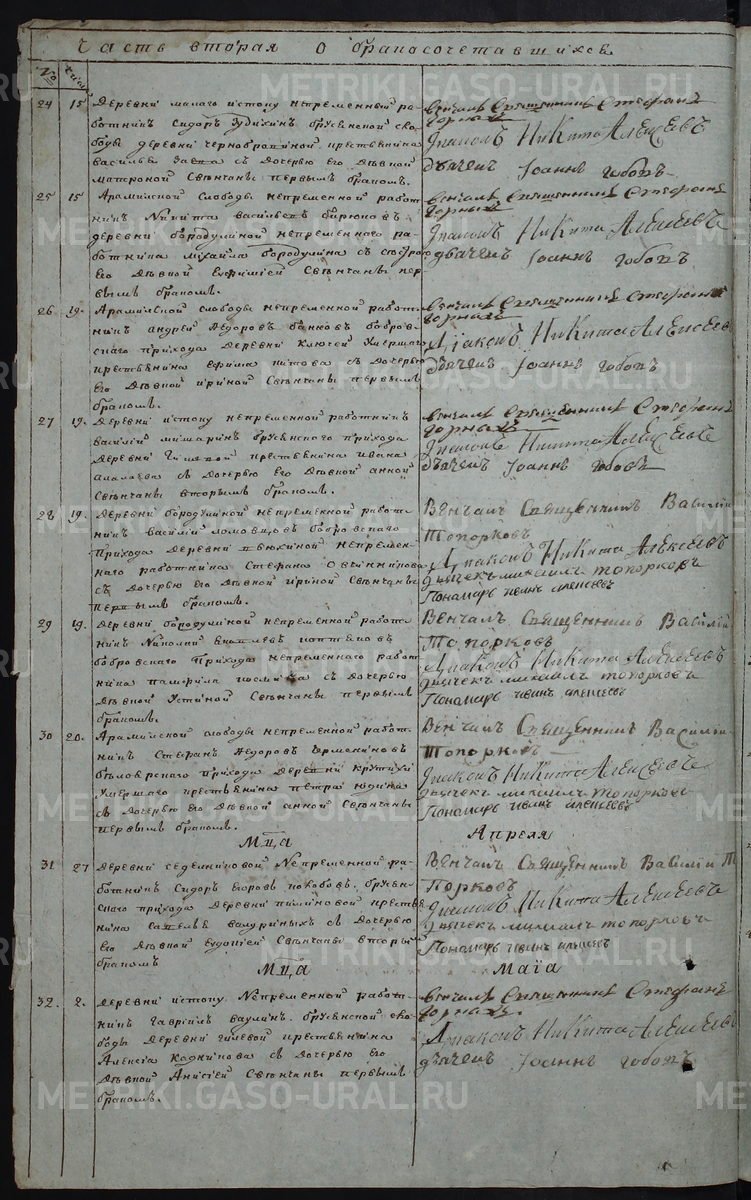 Часть вторая о бракосочетавшихся
№ число
24 15 деревни малаго истоку непременный ра-
ботникъ сидоръ брусенской сло-
боды деревни чернобровиной крестьянина
василья съ дочерью его дѣвкой
матроной Свѣнчаны первымъ бракомъ.
Венчалъ Священникъ Стефанъ
Горныхъ
Диаконъ Никита Алексѣевъ
дьячекъ Іоаннъ
25 15 Арамилской Слободы непременной работ-
никъ Никита васильевъ бирюковъ
деревни бородулиной непременнаго ра-
ботника михаила бородулина съ сестрою
его дѣвкой Евфимией Свѣнчаны пер
вымъ бракомъ.
венчалъ Священникъ Стефанъ
Горныхъ
Диаконъ Никита Алексѣевъ
дьячекъ Іоаннъ
26 19. Арамилской слободы непременной работ-
никъ андрей Ѳедоровъ банковъ бобров-
скаго прихода деревни Ключей Умершаго
крестьянина ефима титова съ дочерью
его дѣвкой ириной Свѣнчаны первымъ
бракомъ.
венчалъ Священникъ Стефанъ
Горныхъ
Диаконъ Никита Алексеевъ
дьячекъ Іоаннъ
27 19. деревни истоку непременной работникъ
василий мишаринъ брусенскаго прихода
деревни крестьянина ивана
съ дочерью его дѣвкой анной
Свѣнчаны вторымъ бракомъ.
венчалъ Священникъ Стефанъ
Горныхъ
Диаконъ Никита Алексѣевъ
дьячекъ Іоаннъ
28 19. деревни бородулиной непременной работ-
никъ василий ломовцовъ бобровскаго
прихода деревни непремен-
наго работника Стефана Овчинникова
съ дочерью его дѣвкой ириной Свѣнчаны
первымъ бракомъ.
Венчалъ Священникъ Василий
Топорковъ
Диаконъ Никита Алексѣевъ
дьячекъ михаилъ топорковъ
Пономарь иванъ алексеевъ
29 19. деревни бородулиной непременной работ-
никъ Николай
бобровскаго прихода непременнаго работ
ника памфила съ дочерью
дѣвкой Устиной Свѣнчаны первымъ
бракомъ.
Венчалъ Священникъ Василий
Топорковъ
Диаконъ Никита Алексѣевъ
дьячекъ михаилъ топорковъ
Пономарь иванъ алексеевъ
30 20. Арамилской слободы непременной работ-
никъ Стефанъ Ѳедоровъ
прихода деревни крутихи
умершаго крестьянина петра юдина
съ дочерью его дѣвкой анной Свѣнчаны
первымъ бракомъ.
Венчалъ Священникъ Василий
Топорковъ
Диаконъ Никита Алексѣевъ
дьячекъ михаилъ топорковъ
Пономарь иванъ алексеевъ
Мца Апреля
31 27 деревни седелниковой Непременной ра-
ботникъ Сидоръ егоровъ брусен-
скаго прихода деревни крестья
нина Савелья съ дочерью
его дѣвкой евдокией Свѣнчаны вторымъ
бракомъ
Венчалъ Священникъ Василий Т
порковъ
Диаконъ Никита Алексѣевъ
дьячекъ михаилъ топорковъ
Пономарь иванъ алексеевъ
Мца Маїа
32. 2. деревни истоку Непременной работ-
никъ гаврилъ ваулинъ. брусенской сло-
боды деревни гилевой крестьянина
Алексѣя съ дочерью его
дѣвкой Анисией Свѣнчаны первымъ
бракомъ.
венчалъ Священникъ Стефанъ
Горныхъ.
Диаконъ Никита Алексѣевъ
дьячекъ Іоаннъ
METRIKI.GASO-URAL.RU